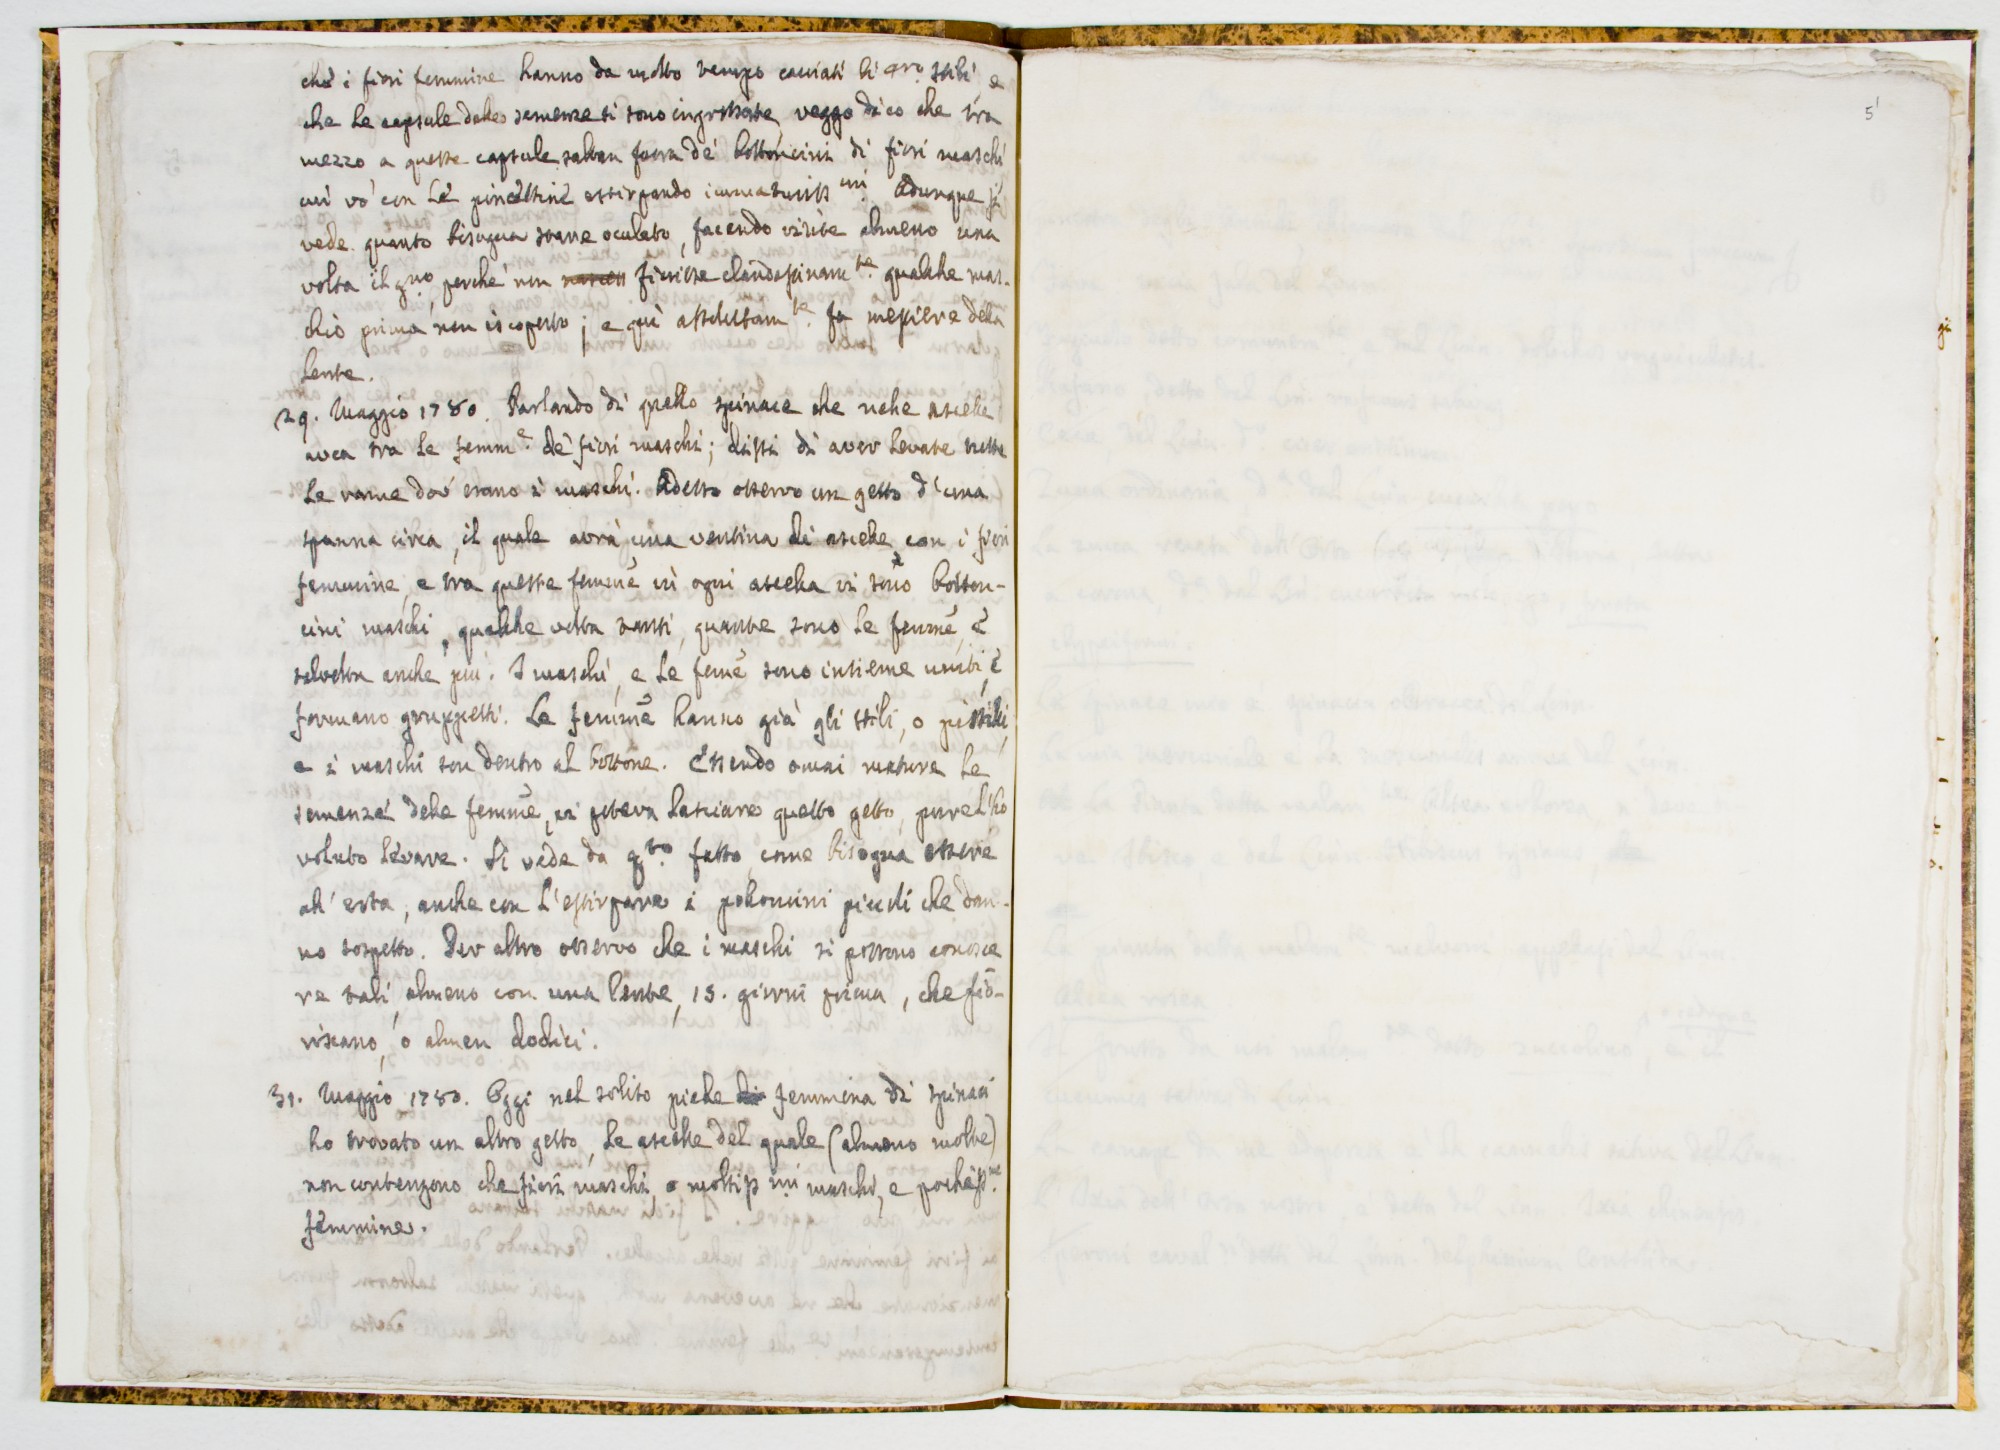 chè i fiori femmine hanno da molto tempo cacciati li qro. stili, e
che le capsule delle semenze si sono ingrossate, veggo dico che tra
mezzo a queste capsule saltan fuora de' bottoncini di fiori maschi
cui vo' con le pincettine estirpando immaturiss.mi Adunque si
vede quanto bisogna stare oculato, facendo visite almeno una
volta il gno, perchè non fiorisse clandestinam.te qualche mas-
chio prima non iscoperto; e quì assolutam.te fa mestiere della
lente.
29. Maggio 1780. Parlando di quello spinace che nelle ascelle
avea tra le femm.e de' fiori maschi; dissi di aver levate tutte
le rame dov' erano i maschi. Adesso osservo un getto d'una
spanna circa, il quale avrà una ventina di ascelle con i fiori
femmine, e tra queste femme in ogni ascella vi sono botton-
cini maschi, qualche volta tanti, quante sono le femme, e
talvolta anche più. I maschi, e le feme sono insieme uniti, e
formano gruppetti. Le femme hanno già gli stili, o pistilli,
e i maschi son dentro al bottone. Essendo omai mature le
semenze delle femme, si poteva lasciare questo getto, pure l'ho
voluto levare. Si vede da q.to fatto come bisogna essere
all' erta, anche con l'estirpare i polloncini piccoli che dan-
no sospetto. Per altro osservo che i maschi si possono conosce
re tali, almeno con una lente, 15. giorni prima, che fio-
riscano, o almen dodici.
31. Maggio 1780. Oggi nel solito piede di femmina di spinaci
ho trovato un altro getto, le ascelle del quale (almeno molte)
non contengono che fiori maschi, o moltiss.mi maschi, e pochiss.me
femmine.
5